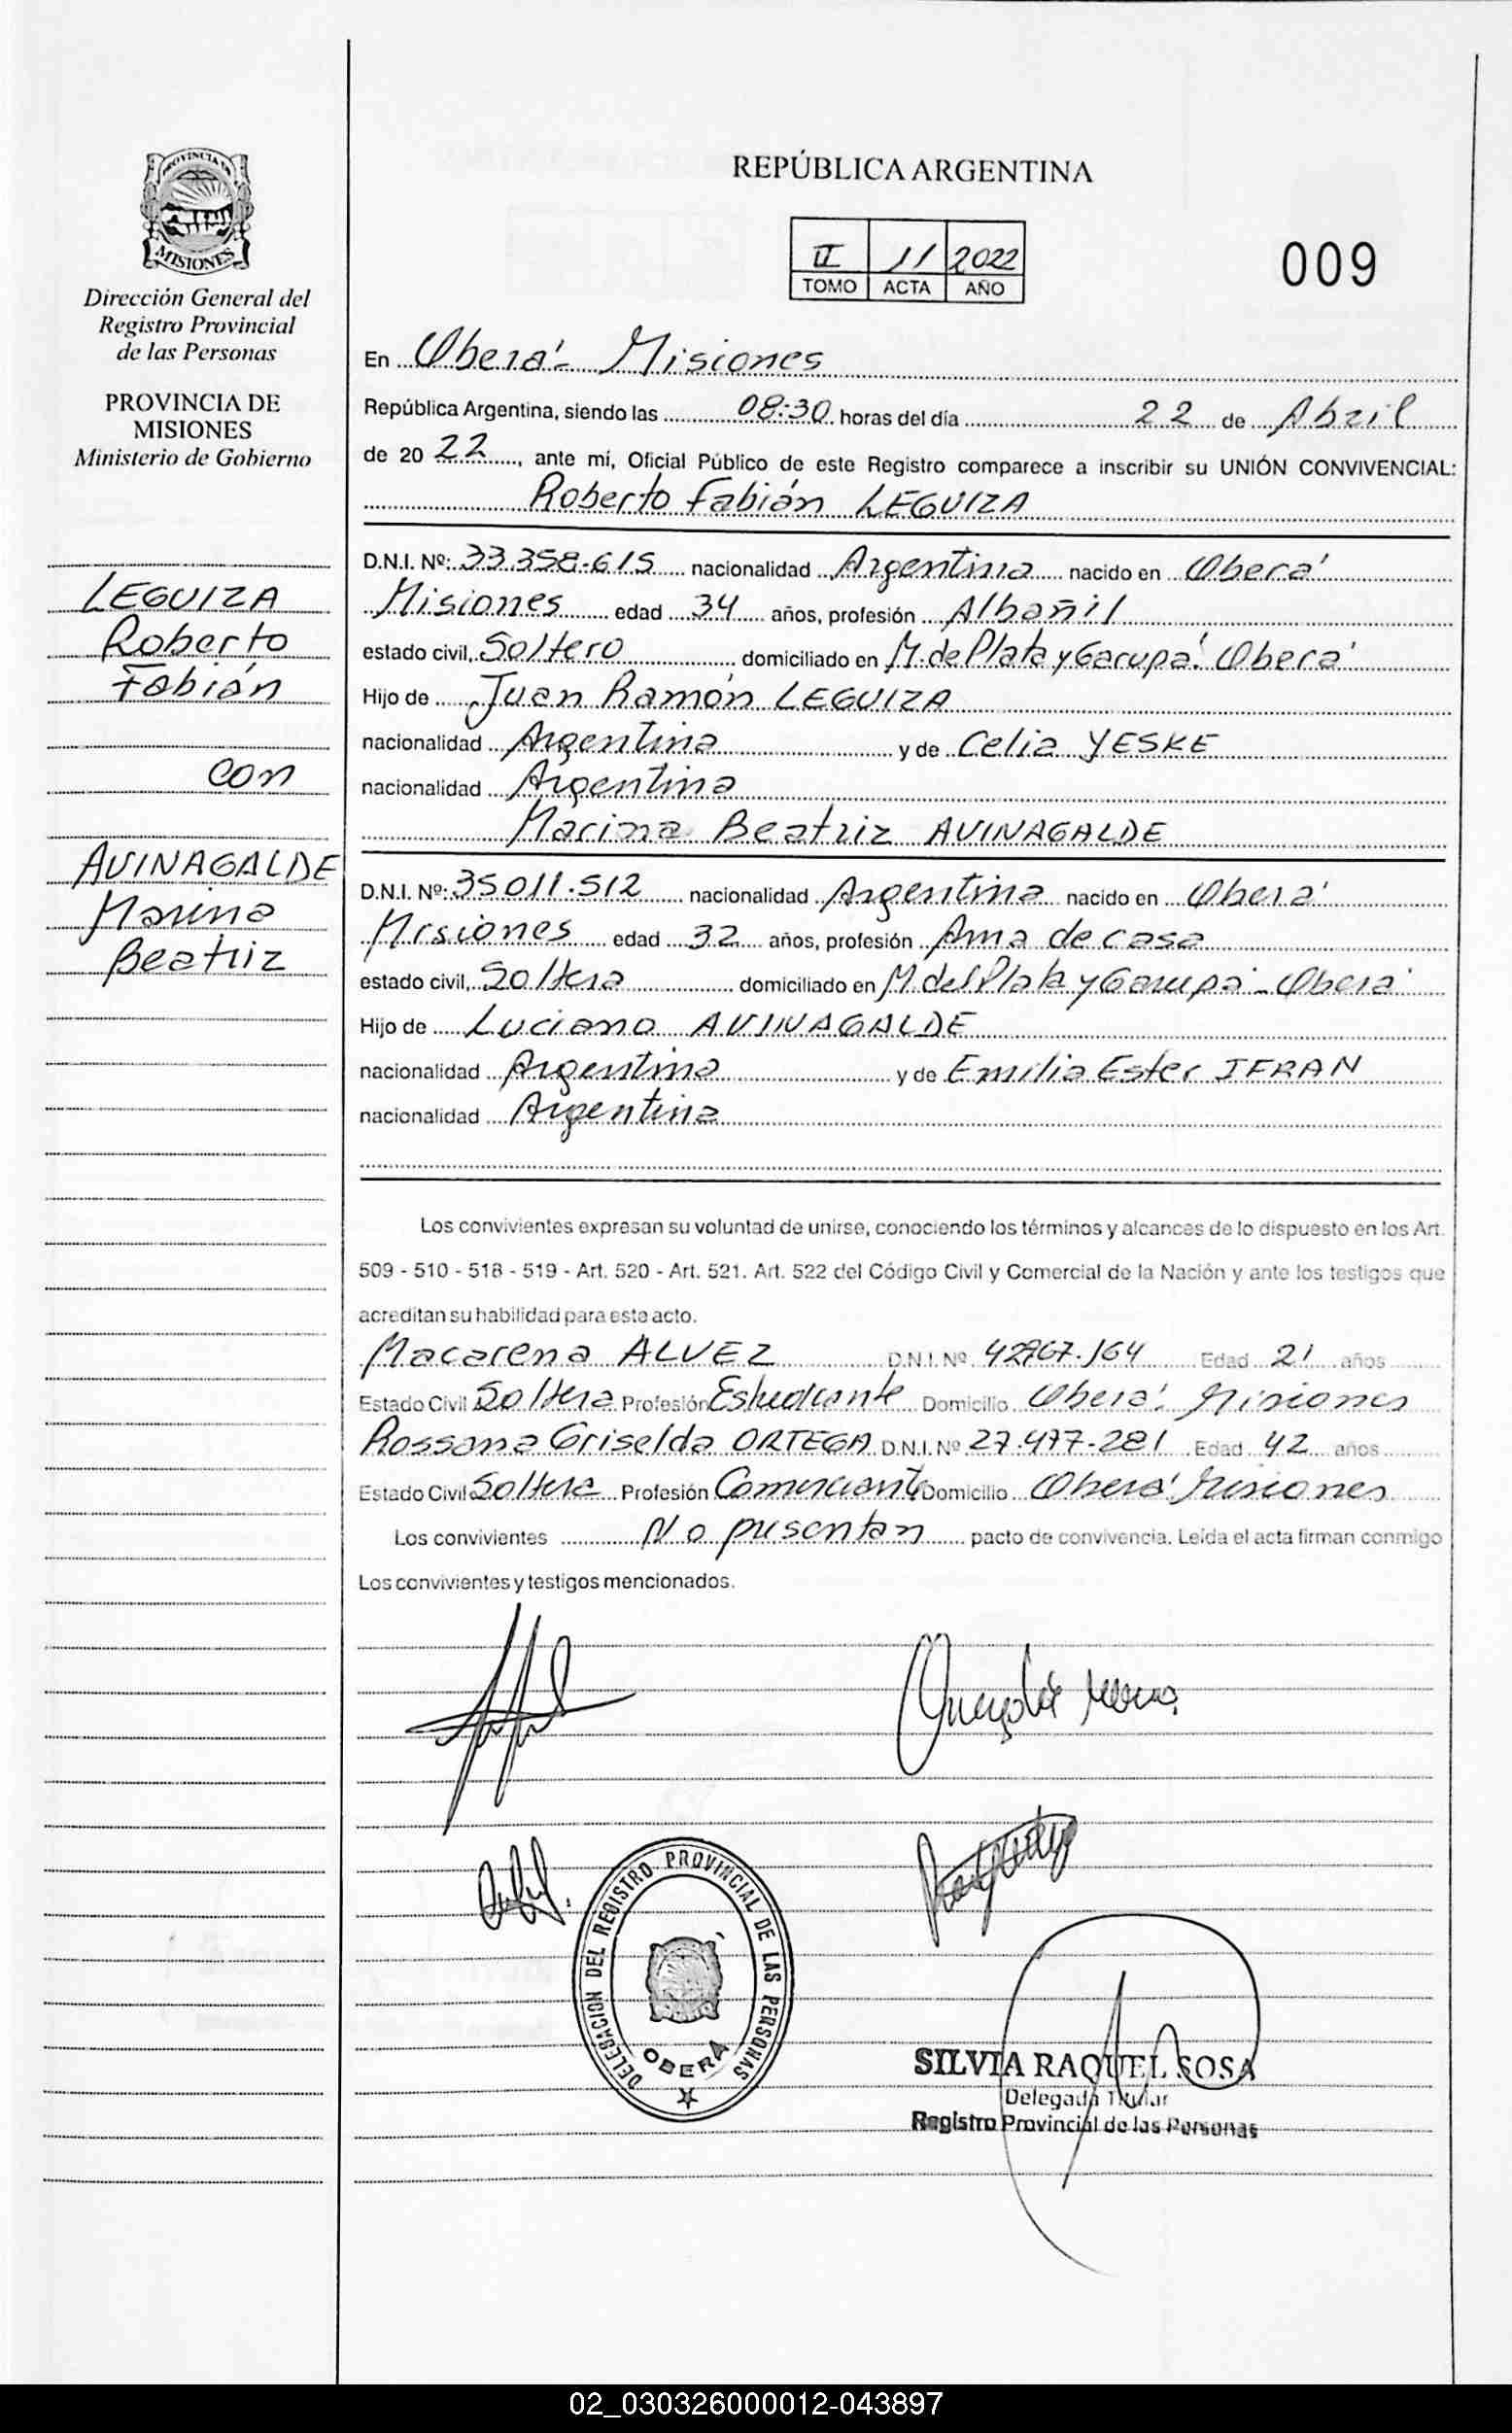 PROVINCIA DE
MISIONES
Dirección General del
Registro Provincial
de las Personas
PROVINCIA DE
MISIONES
Ministerio de Gobierno
LEGUIZA
Roberto
Fabián
con
AVINAGALDE
Marina
Beatriz
REPÚBLICA ARGENTINA
II 11 2022
TOMO ACTA AÑO
009
En Oberá - Misiones
República Argentina, siendo las 08:30 horas del día 22 de Abril
de 20 22, ante mí, Oficial Público de este Registro comparece a inscribir su UNIÓN CONVIVENCIAL:
Roberto Fabián LEGUIZA
D.N.I. Nº: 33.358.615 nacionalidad Argentina nacido en Oberá
Misiones edad 34 años, profesión Albañil
estado civil, Soltero domiciliado en M. de Plata y Garupá. Oberá
Hijo de Juan Ramón LEGUIZA
nacionalidad Argentina y de Celia YESKE
nacionalidad Argentina
Marina Beatriz AVINAGALDE
D.N.I. Nº: 35.011.512 nacionalidad Argentina nacido en Oberá
Misiones edad 32 años, profesión Ama de casa
estado civil, Soltera domiciliado en M. del Plata y Garupá - Oberá
Hijo de Luciano AVINAGALDE
nacionalidad Argentina y de Emilia Ester IFRAN
nacionalidad Argentina
Los convivientes expresan su voluntad de unirse, conociendo los términos y alcances de lo dispuesto en los Art.
509 - 510 - 518 - 519 - Art. 520 - Art. 521. Art. 522 del Código Civil y Comercial de la Nación y ante los testigos que
acreditan su habilidad para este acto.
Macarena ALVEZ D.N.I. Nº 42.767.164 Edad 21 años
Estado Civil Soltera Profesión Estudiante Domicilio Oberá. Misiones
Rossana Griselda ORTEGA D.N.I. Nº 27.477.281 Edad 42 años
Estado Civil Soltera Profesión Comerciante Domicilio Oberá Misiones
Los convivientes No presentan pacto de convivencia. Leída el acta firman conmigo
Los convivientes y testigos mencionados.
DELEGACION DEL REGISTRO PROVINCIAL DE LAS PERSONAS
OBERA
SILVIA RAQUEL SOSA
Delegada Titular
Registro Provincial de las Personas
02_030326000012-043897